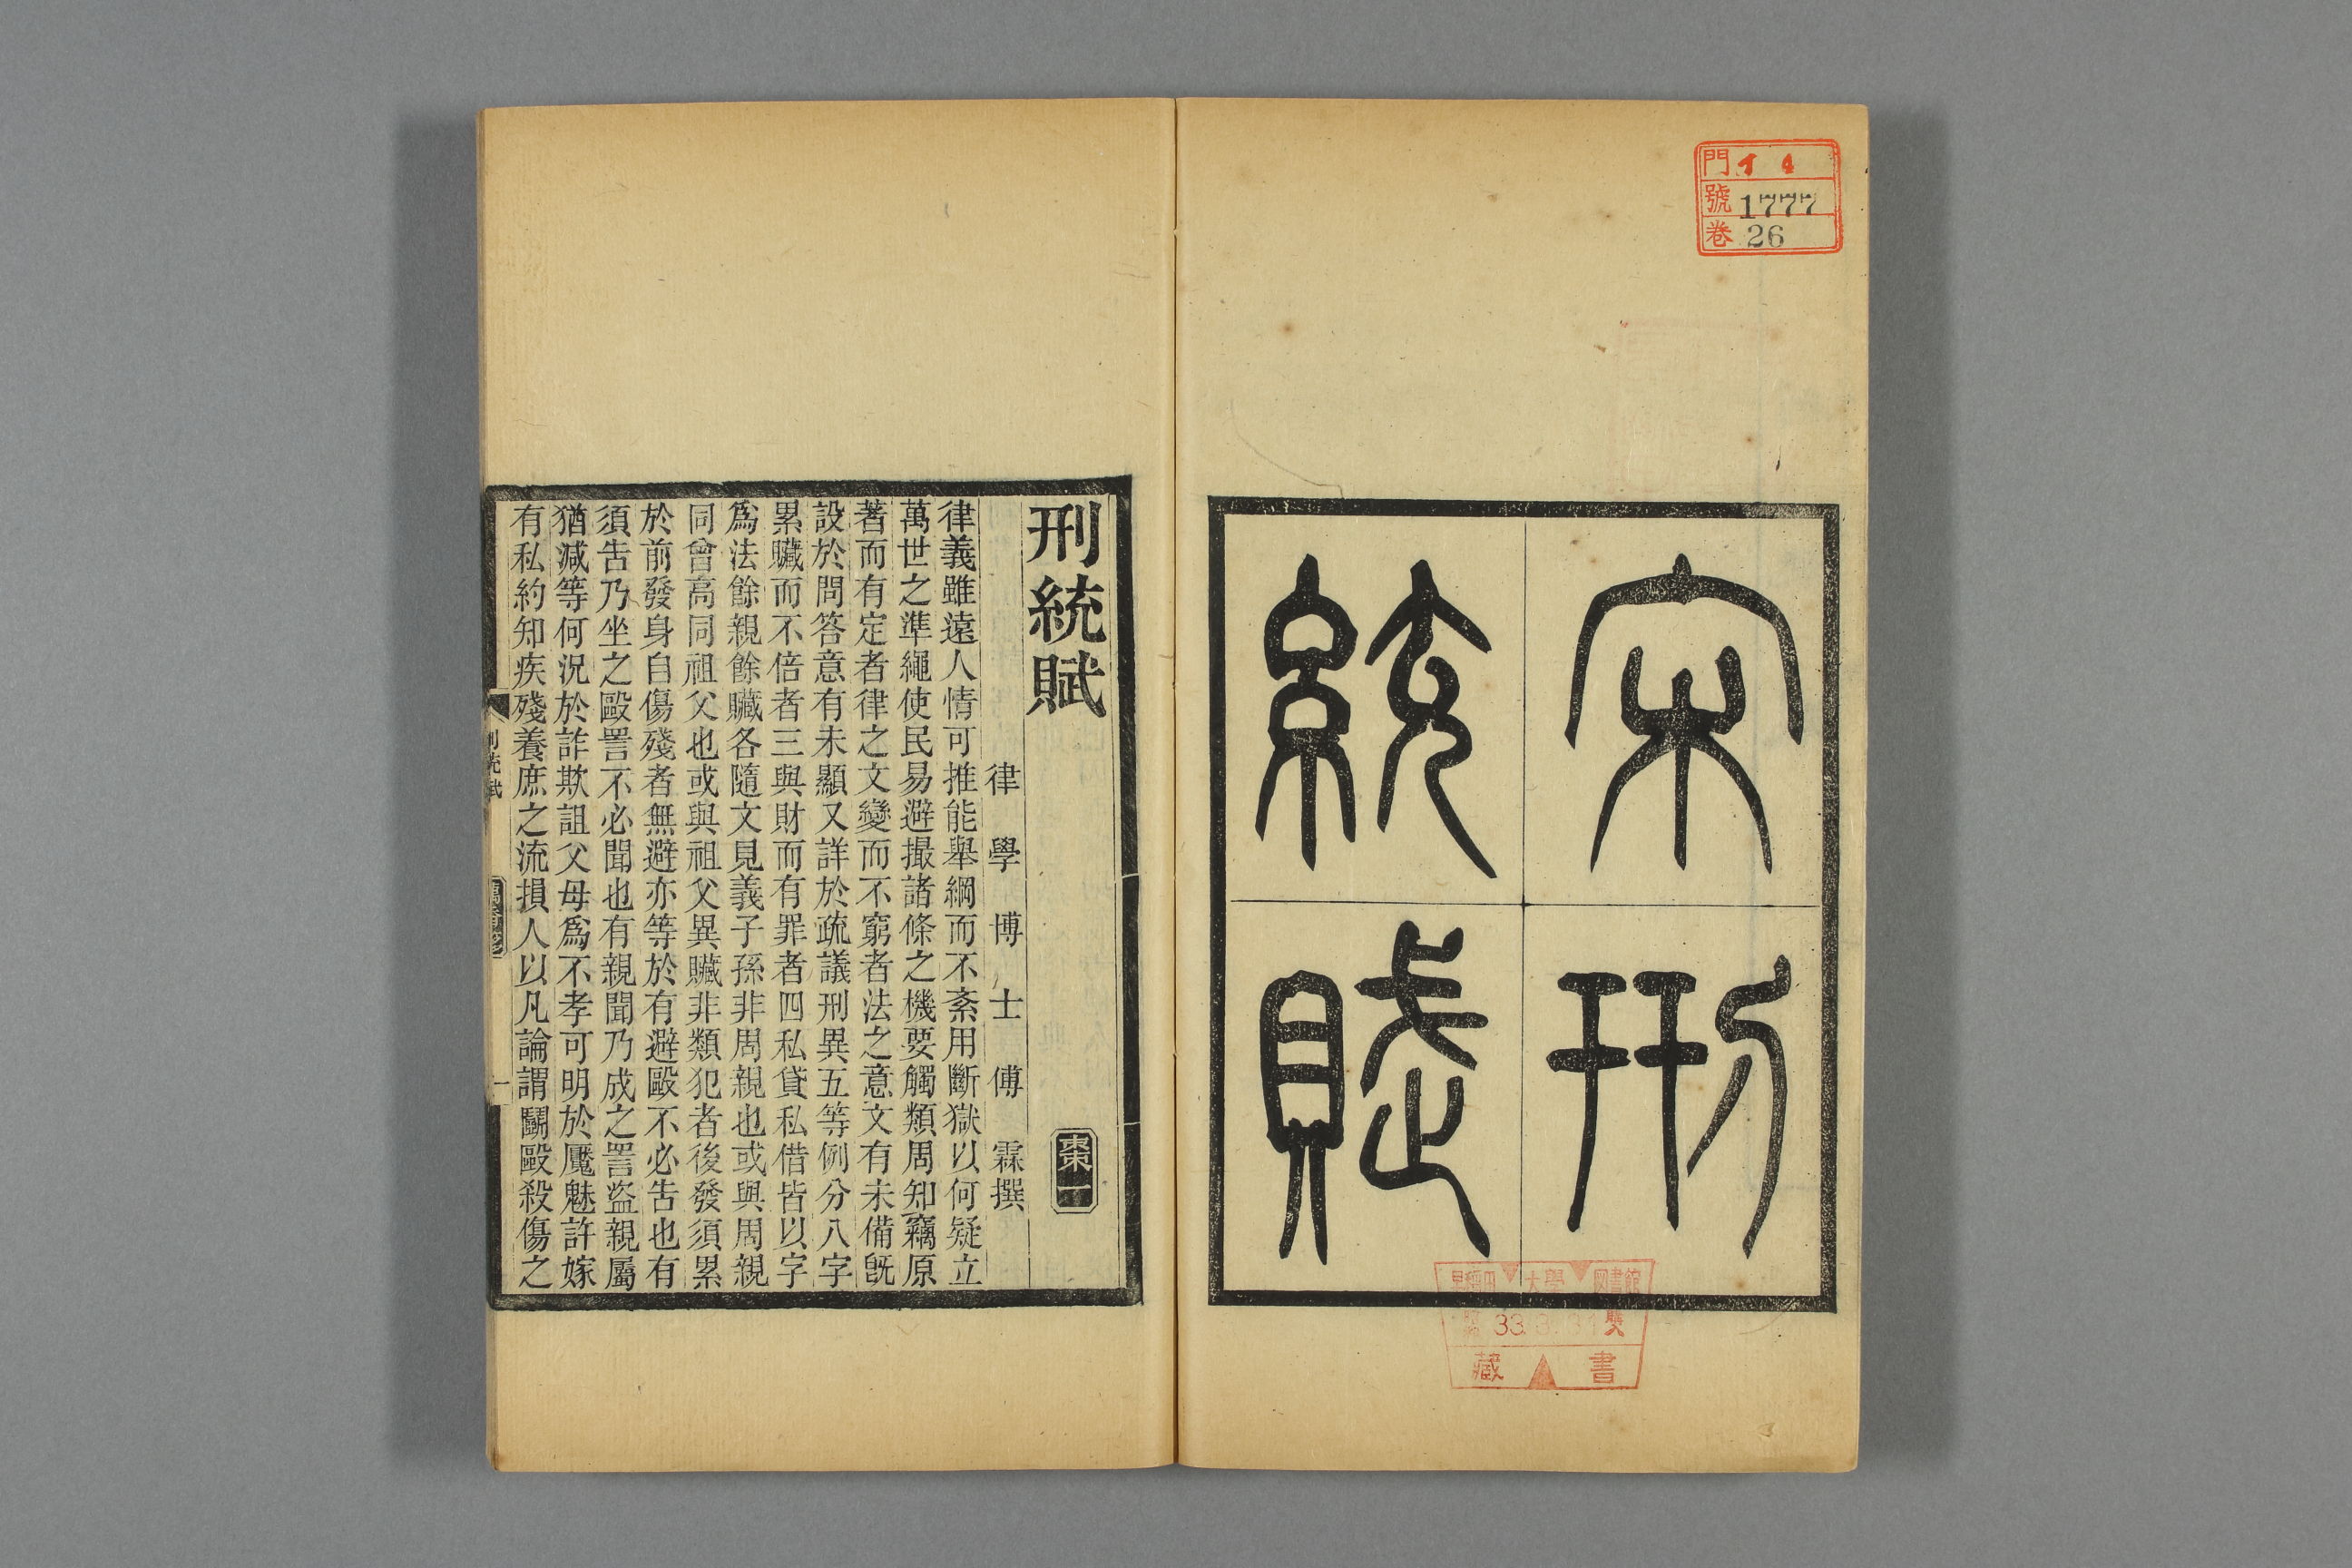 門 イ 4
號 1777
卷 26
宋刑
統賦
早稻田大學圖書館
33.3.31
藏書
刑統賦
棗一
律學博士傅霖撰
律義雖遠人情可推能舉綱而不紊用斷獄以何疑立
萬世之準繩使民易避撮諸條之機要觸類周知竊原
著而有定者律之文變而不窮者法之意文有未備旣
設於問答意有未顯又詳於疏議刑異五等例分八字
累贓而不倍者三與財而有罪者四私貸私借皆以字
爲法餘親餘贓各隨文見義子孫非周親也或與周親
同曾高同祖父也或與祖父異贓非類犯者後發須累
於前發身自傷殘者無避亦等於有避毆不必告也有
須告乃坐之毆詈不必聞也有親聞乃成之詈盜親屬
猶減等何況於詐欺詛父母爲不孝可明於魘魅許嫁
有私約知疾殘養庶之流損人以凡論謂鬬毆殺傷之
一